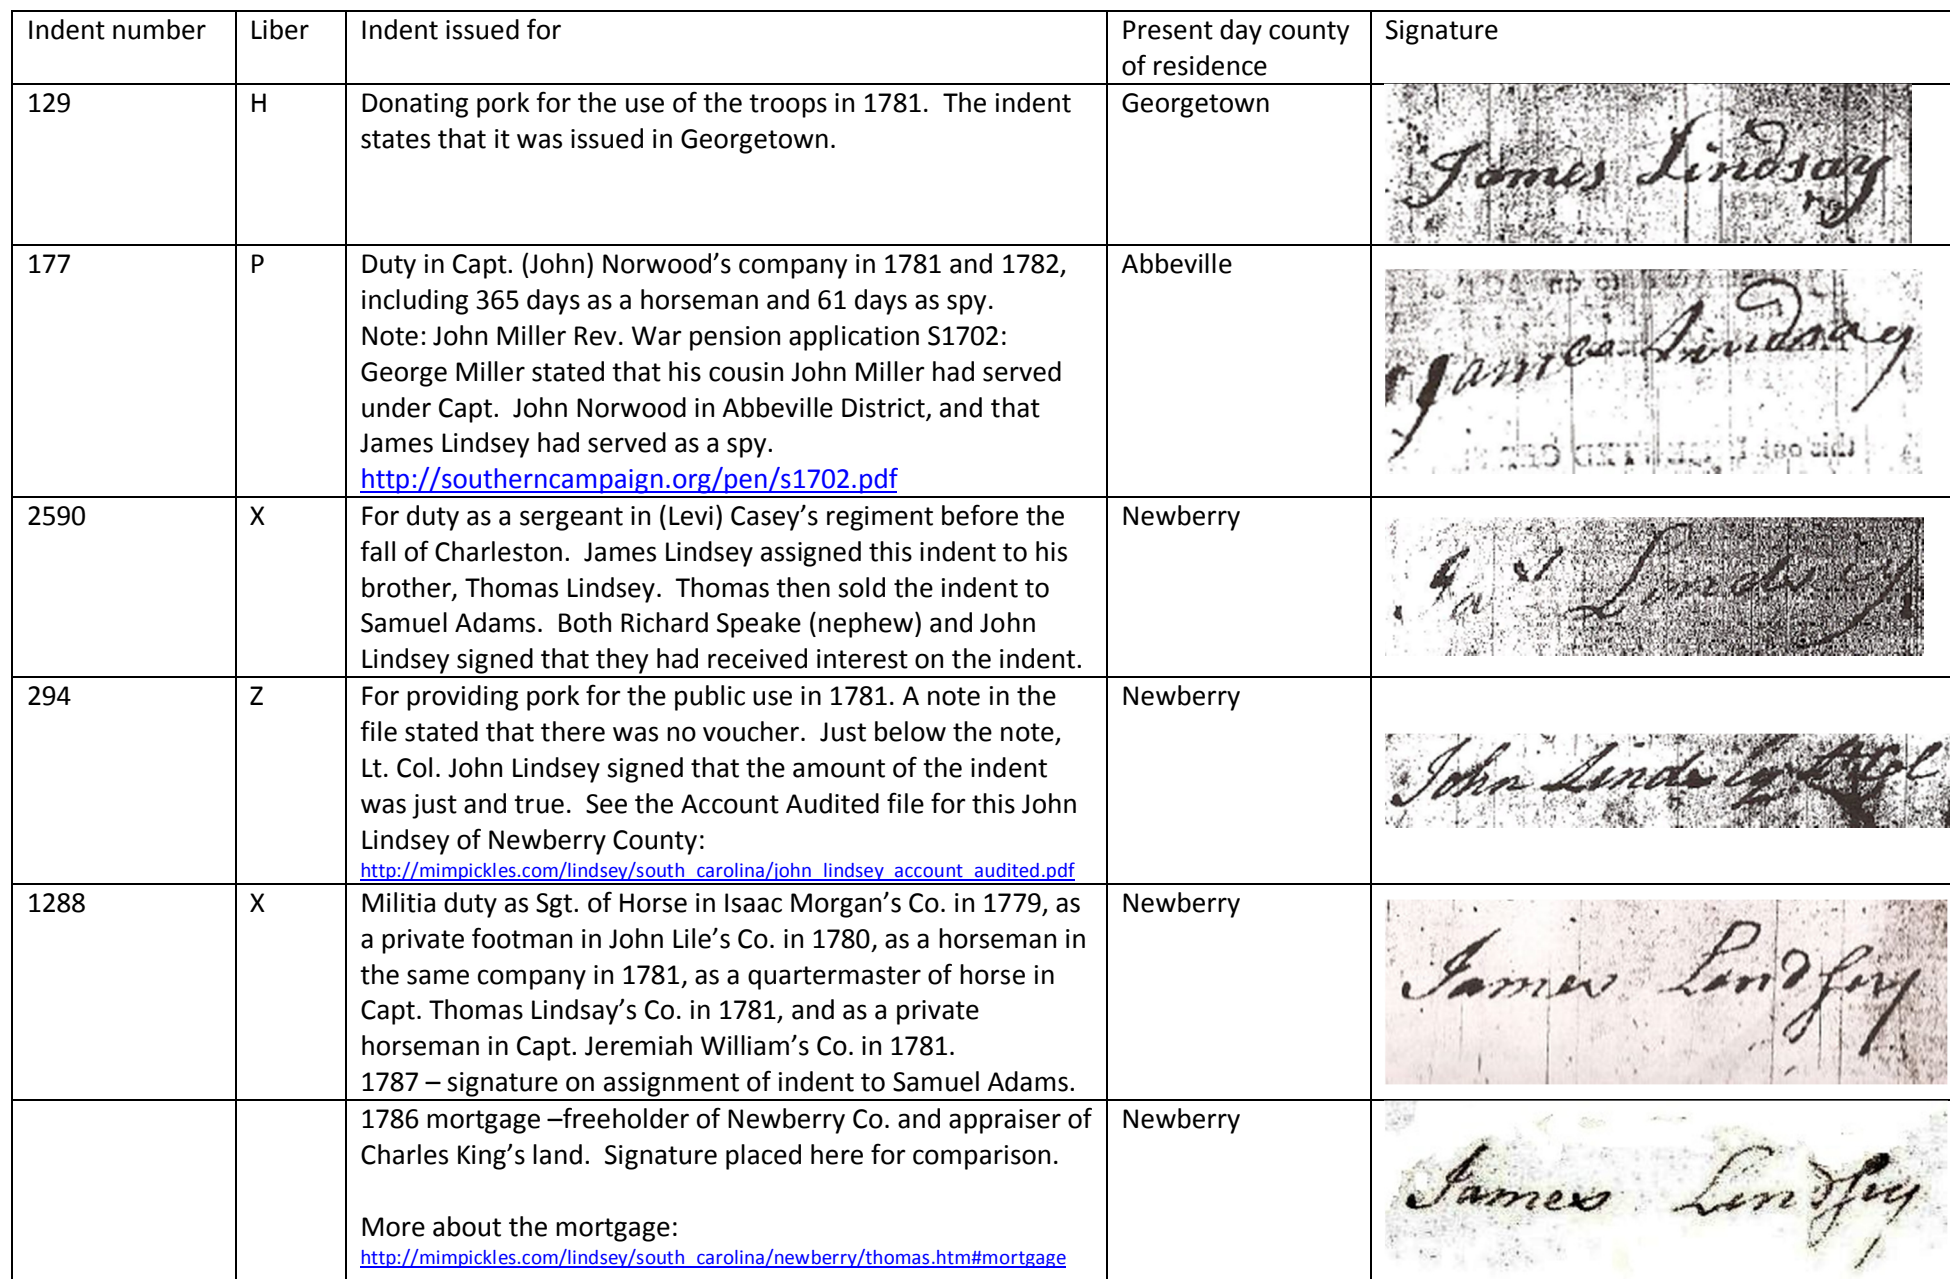 Indent number Liber Indent issued for Present day county of residence Signature
129 H Donating pork for the use of the troops in 1781. The indent
states that it was issued in Georgetown.
Georgetown
James Lindsay
177 P Duty in Capt. (John) Norwood’s company in 1781 and 1782,
including 365 days as a horseman and 61 days as spy.
Note: John Miller Rev. War pension application S1702:
George Miller stated that his cousin John Miller had served
under Capt. John Norwood in Abbeville District, and that
James Lindsey had served as a spy.
http://southerncampaign.org/pen/s1702.pdf
Abbeville
James Lindsay
2590 X For duty as a sergeant in (Levi) Casey’s regiment before the
fall of Charleston. James Lindsey assigned this indent to his
brother, Thomas Lindsey. Thomas then sold the indent to
Samuel Adams. Both Richard Speake (nephew) and John
Lindsey signed that they had received interest on the indent.
Newberry
Jas Lindsey
294 Z For providing pork for the public use in 1781. A note in the
file stated that there was no voucher. Just below the note,
Lt. Col. John Lindsey signed that the amount of the indent
was just and true. See the Account Audited file for this John
Lindsey of Newberry County:
http://mimpickles.com/lindsey/south_carolina/john_lindsey_account_audited.pdf
Newberry
John Lindsey Lt Col
1288 X Militia duty as Sgt. of Horse in Isaac Morgan’s Co. in 1779, as
a private footman in John Lile’s Co. in 1780, as a horseman in
the same company in 1781, as a quartermaster of horse in
Capt. Thomas Lindsay’s Co. in 1781, and as a private
horseman in Capt. Jeremiah William’s Co. in 1781.
1787 – signature on assignment of indent to Samuel Adams.
Newberry
James Lindsey
1786 mortgage –freeholder of Newberry Co. and appraiser of
Charles King’s land. Signature placed here for comparison.
More about the mortgage:
http://mimpickles.com/lindsey/south_carolina/newberry/thomas.htm#mortgage
Newberry
James Lindsey